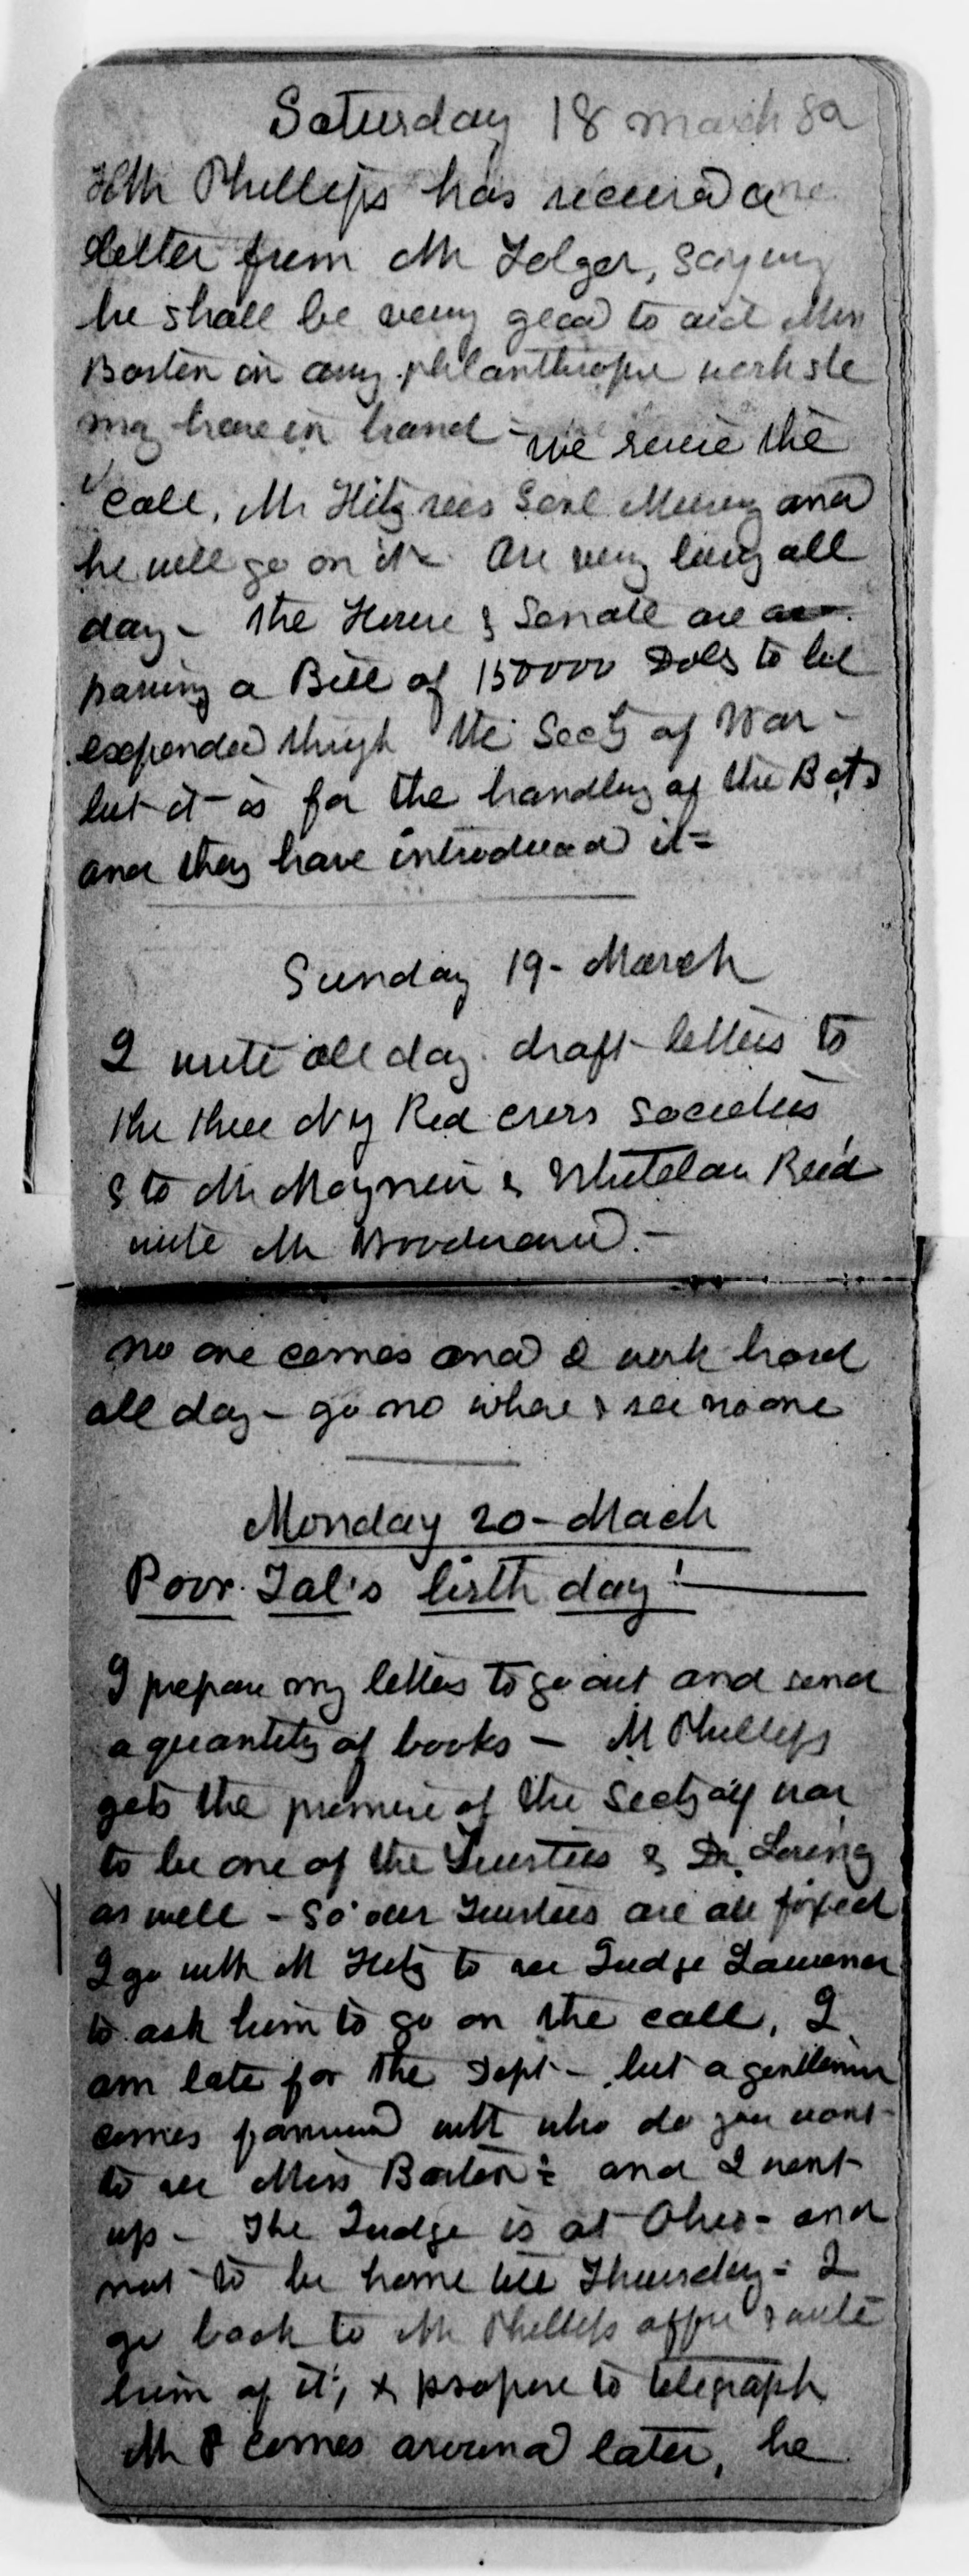 Saturday 18 March 82
Mr Phillips has received a
letter from Mr Folger, saying
he shall be very glad to aid Miss
Barton in any philanthropic work she
may have in hand - we revise the
"Call, Mr Hitz sees Genl Mussey and
he will go on it - Are very busy all
day - The House & Senate are
passing a Bill of 150000 Dols to be
expended through the Secty of War -
but it is for the handling of the Boats
and they have introduced it =
Sunday 19 - March
I write all day draft letters to
the three N Y Red cross societies,
& to Mr Moynier & Whitelaw Reid
write Mr Woodward. -
no one comes and I work hard
all day - go no where & see no one
Monday 20 - Mach
Poor Tal's birth day!
I prepare my letters to go out and send
a quantity of books - M Phillips
gets the promise of the Secty of War
to be one of the Trustees & Dr. Loring
as well - So our Trustees are all fixed
I go with M Hitz to see Judge Lawrence
to ask him to go on the call, I
am late for the Dept - but a gentleman
comes forward with who do you want
to see Miss Barton? and I went
up - The Judge is at Ohio - and
not to be home till Thursday - I
go back to Mr Phillips office & write
him of it, & propose to telegraph
Mr P comes around later, he